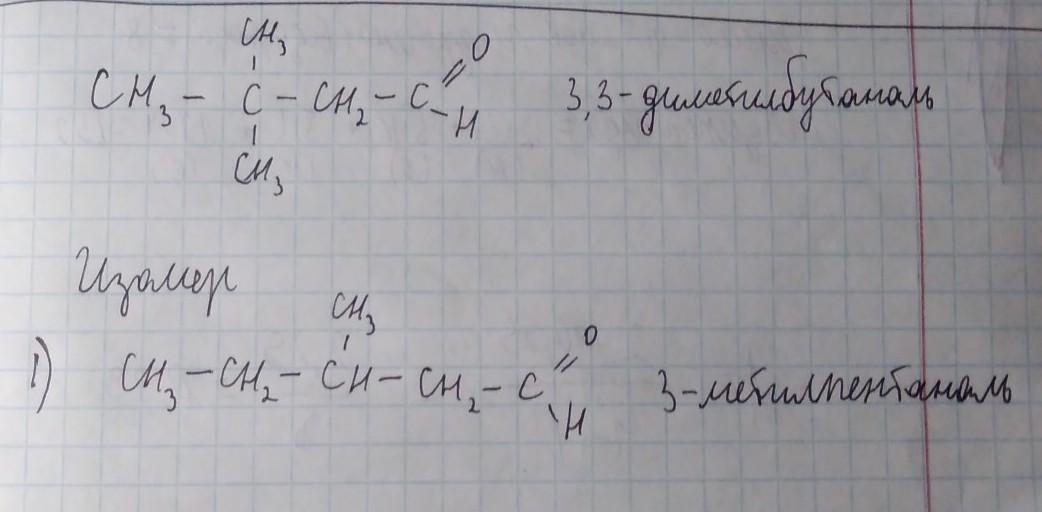 CH₃
CH₃ – C – CH₂ – C =O –H 3,3-диметилбутаналь
CH₃
Изомер
CH₃
1) CH₃ – CH₂ – CH – CH₂ – C =O –H 3-метилпентаналь